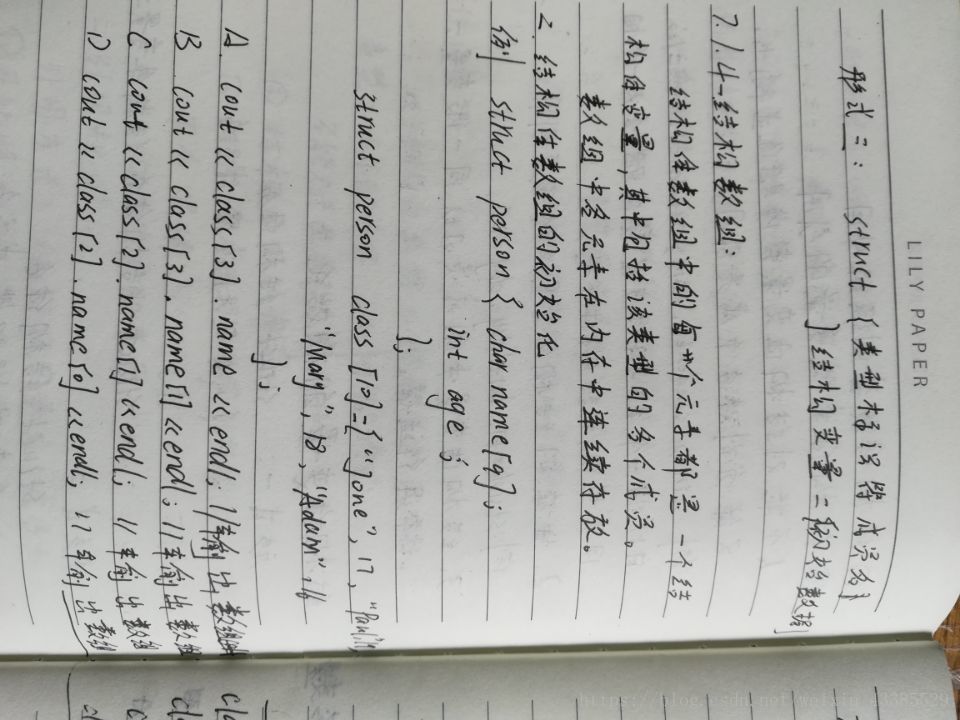 LILY PAPER
形式二: struct {类型标识符 成员名}
} 结构变量={初始数据}
7.1.4-结构数组:
结构体数组中的每一个元素都是一个结
构体变量,其中包括该类型的各个成员。
数组中各元素在内存中连续存放。
2. 结构体数组的初始化
例 struct person { char name[9];
int age;
};
struct person class [10]={"Jone", 17, "Paul", 19,
"Mary", 18, "Adam", 16
};
A. cout << class[3].name << endl; //输出数组
B. cout << class[3].name[1] << endl; //输出数组
C cout << class[2].name[1] << endl; //输出数组
D cout << class[2].name[0] << endl; //输出数组
https://blog.csdn.net/weixin_43385539